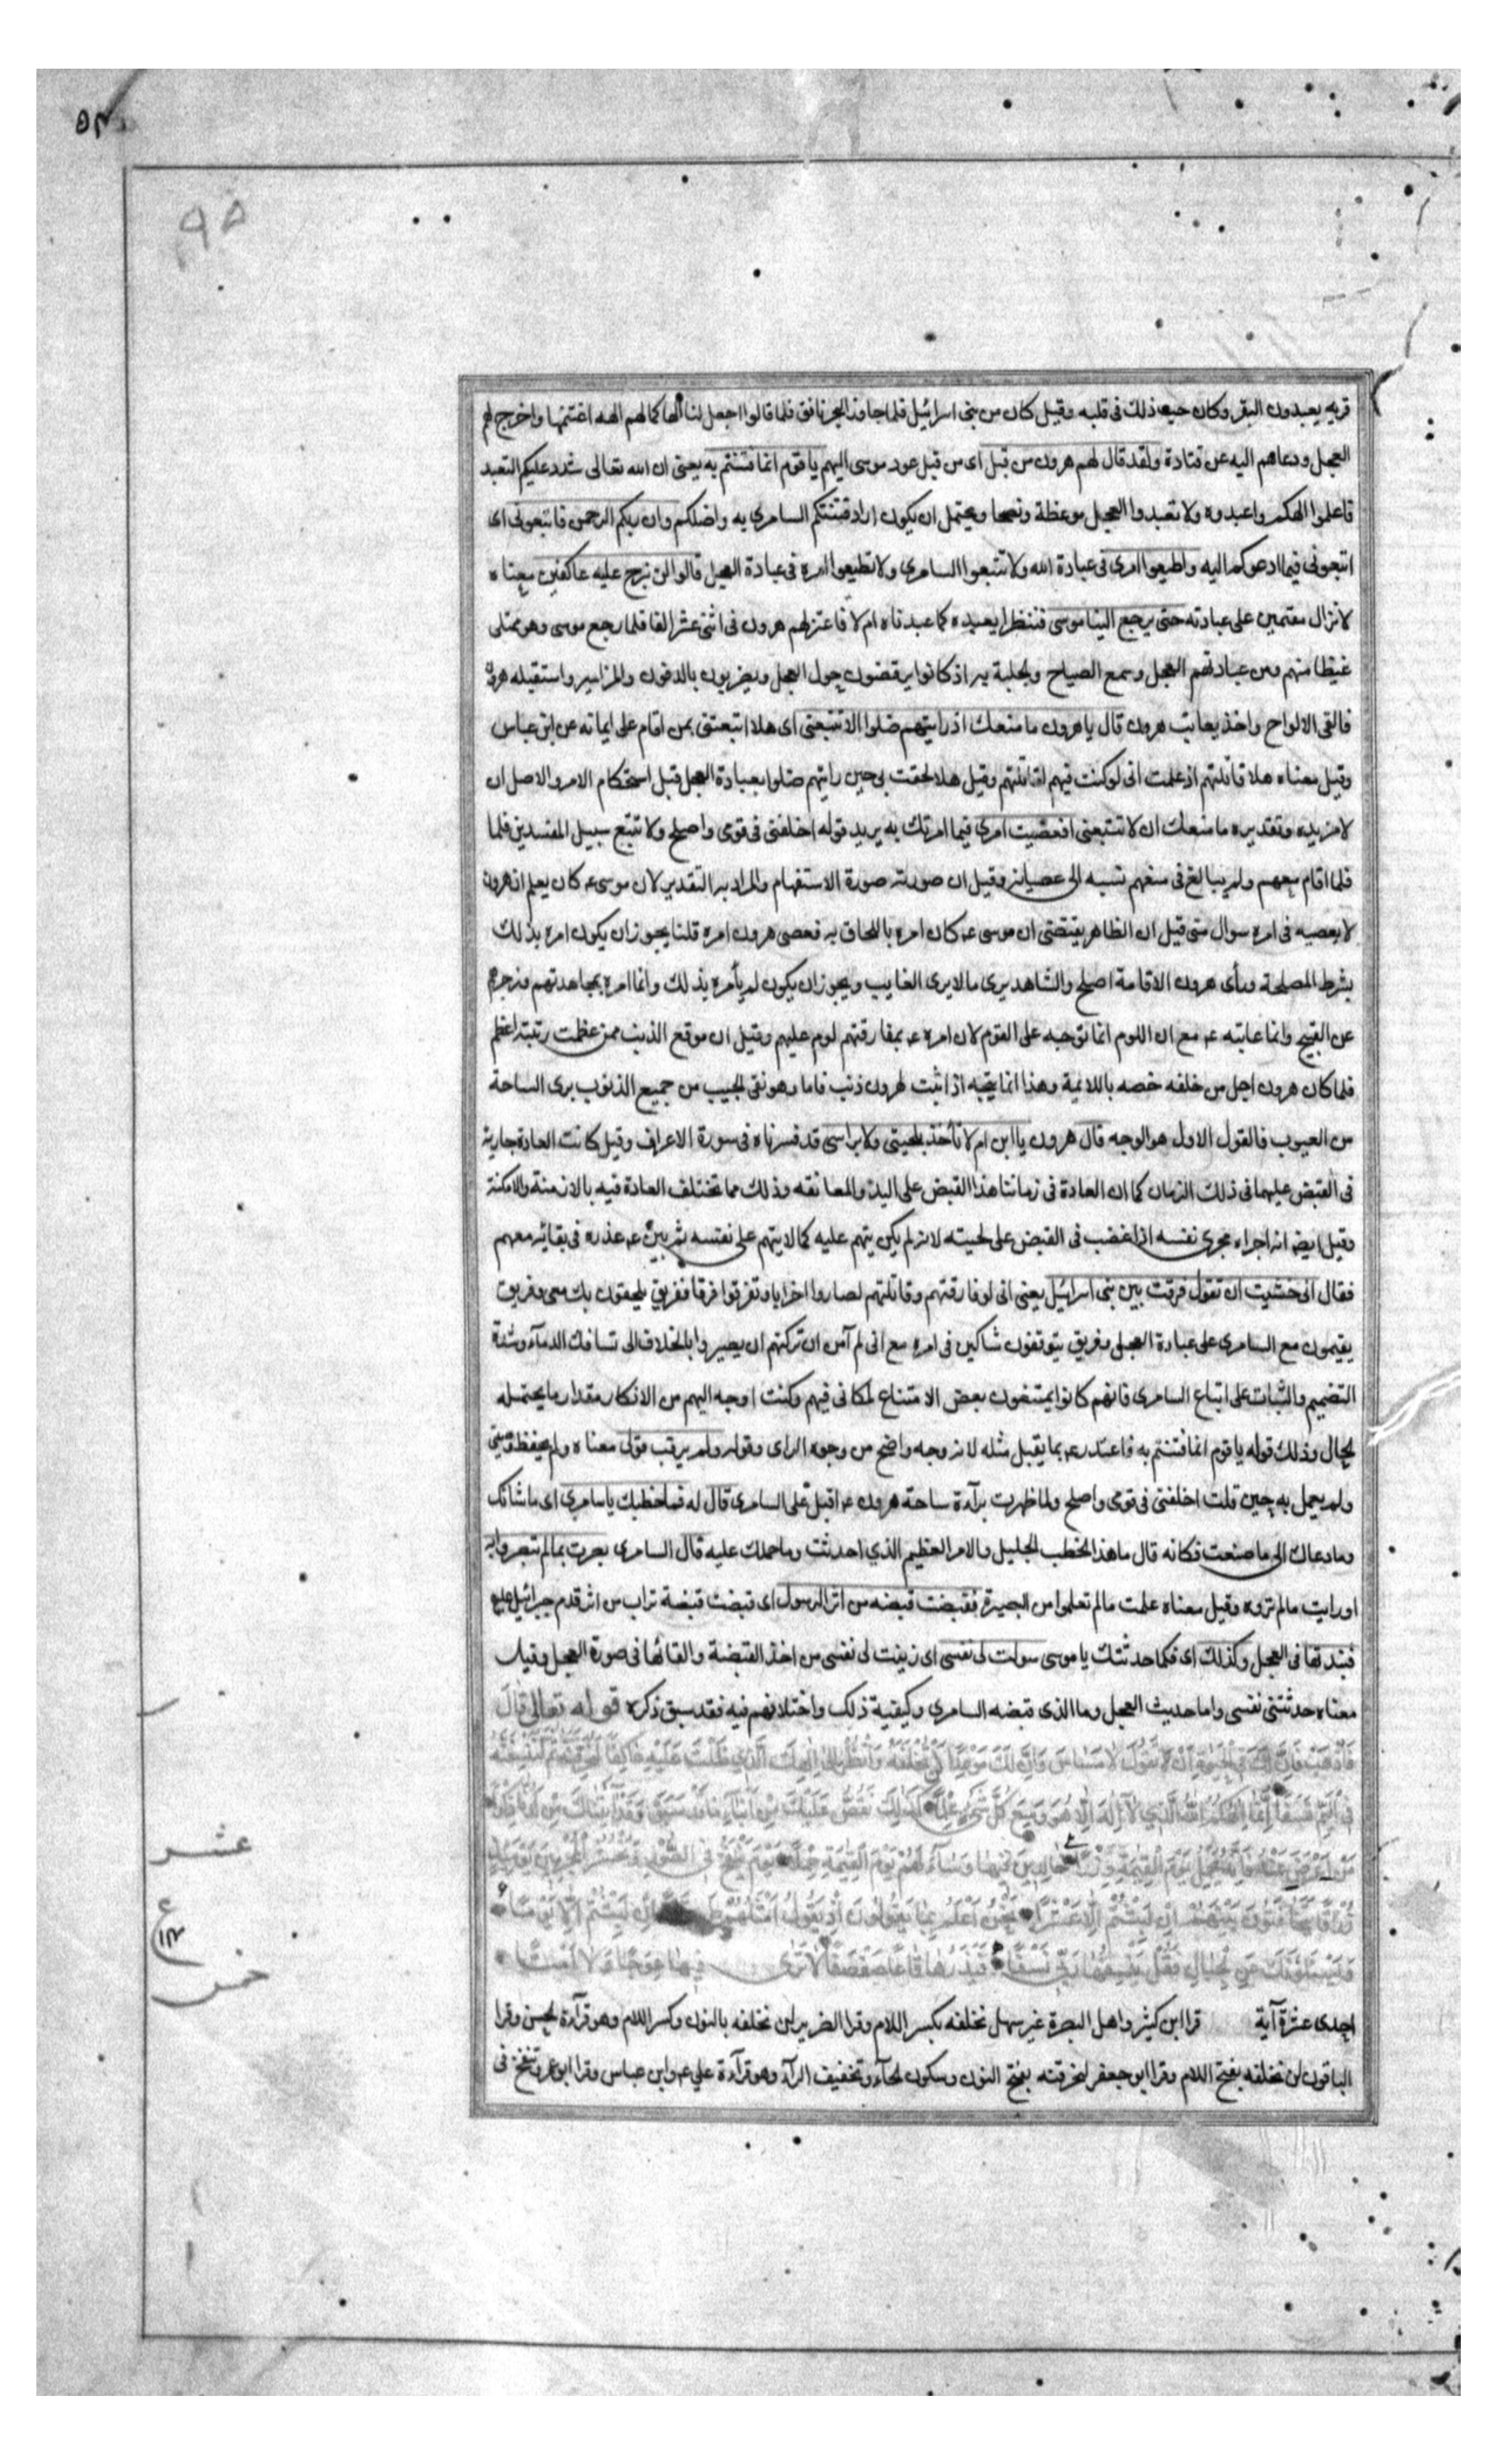 ٥٢
٩٥
قريه يعبدون البقر وكان حب ذلك فى قلبه وقيل كان من بنى اسرائيل فلما جاوز البحر نافق فلما قالوا اجعل لنا الها كما لهم الهه اغتنمها واخرج لهم
العجل ودعاهم اليه عن قتادة ولقد قال لهم هرون من قبل اى من قبل عود موسى اليهم يا قوم انما فتنتم به يعنى ان الله تعالى شدد عليكم التعبد
فاعلموا الهكم واعبدوه ولا تعبدوا العجل موعظة ونصحا ويحتمل ان يكون اراد فتنتكم السامرى به واضلكم وان ربكم الرحمن فاتبعونى اى
اتبعونى فيما ادعوكم اليه واطيعوا امرى فى عبادة الله ولا تتبعوا السامرى ولا تطيعوا امره فى عبادة العجل قالوا لن نبرح عليه عاكفين معناه
لا نزال مقيمين على عبادته حتى يرجع الينا موسى فننظر ايعبده كما عبدناه ام لا فاعتزلهم هرون فى اثنى عشر الفا فلما رجع موسى وهو ممتلى
غيظا منهم ومن عبادتهم العجل وسمع الصياح والجلبة اذ كانوا يرقصون حول العجل ويضربون بالدفوف والمزامير واستقبله هرون
فالقى الالواح واخذ يعاتب هرون قال يا هرون ما منعك اذ رايتهم ضلوا الا تتبعنى اى هلا اتبعتنى بمن اقام على ايمانه عن ابن عباس
وقيل معناه هلا قاتلتهم اذ علمت انى لو كنت فيهم لقاتلتهم وقيل هلا لحقت بى حين رايتهم ضلوا بعبادة العجل قبل استحكام الامر والاصل ان
لا مزيده وتقديره ما منعك ان لا تتبعنى افعصيت امرى فيما امرتك به يريد قوله اخلفنى فى قومى واصلح ولا تتبع سبيل المفسدين فلما
فلما اقام معهم ولم يبالغ فى منعهم نسبه الى عصيانه وقيل ان صورته صورة الاستفهام والمراد به التقدير لان موسى ع كان يعلم ان هرون
لا يعصيه فى امره سوال متى قيل ان الظاهر يقتضى ان موسى ع كان امره باللحاق به فعصى هرون امره قلنا يجوز ان يكون امره بذلك
بشرط المصلحة وراى هرون الاقامة اصلح والشاهد يرى ما لا يرى الغايب ويجوز ان يكون لم يأمره بذلك وانما امره بمجاهدتهم وزجرهم
عن القبيح وانما عاتبه ع مع ان اللوم انما توجبه على القوم لان امره ع بمفارقتهم لوم عليهم وقيل ان موقع الذنب ممن عظمت رتبته اعظم
فلما كان هرون اجل من خلفه خصه باللائمة وهذا انما يتجه اذا ثبت لهرون ذنب فاما وهو نقى الجيب من جميع الذنوب برى الساحة
من العيوب فالقول الاول هو الوجه قال هرون يا ابن ام لا تأخذ بلحيتى ولا براسى قد فسرناه فى سورة الاعراف وقيل كانت العادة جارية
فى القبض عليهما فى ذلك الزمان كما ان العادة فى زماننا هذا القبض على اليد والمعانقه وذلك مما تختلف العادة فيه بالازمنة والامكنة
وقيل ايضا انه اجراه مجرى نفسه اذا غضب فى القبض على لحيته لانه لم يكن يتهم عليه كما لا يتهم على نفسه ثم بين ع عذره فى بقائه معهم
فقال انى خشيت ان تقول فرقت بين بنى اسرائيل يعنى انى لو فارقتهم وقاتلتهم لصاروا احزابا وتفرقوا فرقا ففريق يلحقون بك منى وفريق
يقيمون مع السامرى على عبادة العجل وفريق يتوقفون شاكين فى امره مع انى لم آمن ان تركتهم ان يصيروا بالخلاف الى تسافك الدمآء وشدة
التصميم والثبات على اتباع السامرى فانهم كانوا يمتنعون بعض الامتناع لمكانى فيهم وكنت اوجه اليهم من الانكار مقدار ما يحتمله
الحال وذلك قوله يا قوم انما فتنتم به فاعتذر ع بما يقبل مثله لانه وجه واضح من وجوه الراى وقوله ولم يرقب قولى معناه ولم يحفظ وصيتى
ولم يعمل به حين قلت اخلفنى فى قومى واصلح ولما ظهرت برآءة ساحة هرون ع اقبل على السامرى قال له فما خطبك يا سامرى اى ما شانك
وما دعاك الى ما صنعت فكانه قال ما هذا الخطب الجليل والامر العظيم الذي احدثت وما حملك عليه قال السامرى بصرت بما لم تبصروا به
او رايت ما لم تروه وقيل معناه علمت ما لم تعلموا من البصيرة فقبضت قبضه من اثر الرسول اى قبضت قبضة تراب من اثر قدم جبرائيل ع
فنبذتها فى العجل وكذلك اى فكما حدثتك يا موسى سولت لى نفسى اى زينت لى نفسى من اخذ القبضة والقائها فى صورة العجل وقيل
معناه حدثتنى نفسى واما حديث العجل وما الذى قبضه السامرى وكيفية ذلك واختلافهم فيه فقد سبق ذكره قوله تعالى قال
فَاذْهَبْ فَاِنَّ لَكَ فِى الْحَيٰوةِ اَنْ تَقُولَ لَا مِسَاسَ وَاِنَّ لَكَ مَوْعِدًا لَنْ تُخْلَفَهُ وَانْظُرْ اِلٰى اِلٰهِكَ الَّذِي ظَلْتَ عَلَيْهِ عَاكِفًا لَنُحَرِّقَنَّهُ ثُمَّ لَنَنْسِفَنَّهُ
فِى الْيَمِّ نَسْفًا اِنَّمَا اِلٰهُكُمُ اللّٰهُ الَّذِي لَا اِلٰهَ اِلَّا هُوَ وَسِعَ كُلَّ شَيْءٍ عِلْمًا كَذٰلِكَ نَقُصُّ عَلَيْكَ مِنْ اَنْبَآءِ مَا قَدْ سَبَقَ وَقَدْ اٰتَيْنَاكَ مِنْ لَدُنَّا ذِكْرًا
مَنْ اَعْرَضَ عَنْهُ فَاِنَّهُ يَحْمِلُ يَوْمَ الْقِيٰمَةِ وِزْرًا خَالِدِينَ فِيهَا وَسَآءَ لَهُمْ يَوْمَ الْقِيٰمَةِ حِمْلًا يَوْمَ يُنْفَخُ فِى الصُّورِ وَنَحْشُرُ الْمُجْرِمِينَ يَوْمَئِذٍ
زُرْقًا يَتَخَافَتُونَ بَيْنَهُمْ اِنْ لَبِثْتُمْ اِلَّا عَشْرًا نَحْنُ اَعْلَمُ بِمَا يَقُولُونَ اِذْ يَقُولُ اَمْثَلُهُمْ اِنْ لَبِثْتُمْ اِلَّا يَوْمًا
وَيَسْـَٔلُونَكَ عَنِ الْجِبَالِ فَقُلْ يَنْسِفُهَا رَبِّى نَسْفًا فَيَذَرُهَا قَاعًا صَفْصَفًا لَا تَرٰى فِيهَا عِوَجًا وَلَا اَمْتًا
احدى عشرة آية قرا ابن كثير واهل البصرة غير سهل تخلفه بكسر اللام وقرا الضرير لن نخلفه بالنون وكسر اللام وهو قرآءة الحسن وقرا
الباقون لن تخلفه بفتح اللام وقرا ابو جعفر لنحرقنه بفتح النون وسكون الحآء وتخفيف الرآء وهو قرآءة على ع وابن عباس وقرا ابو عمرو ننفخ فى
عشر
ع
١١٢
خمس